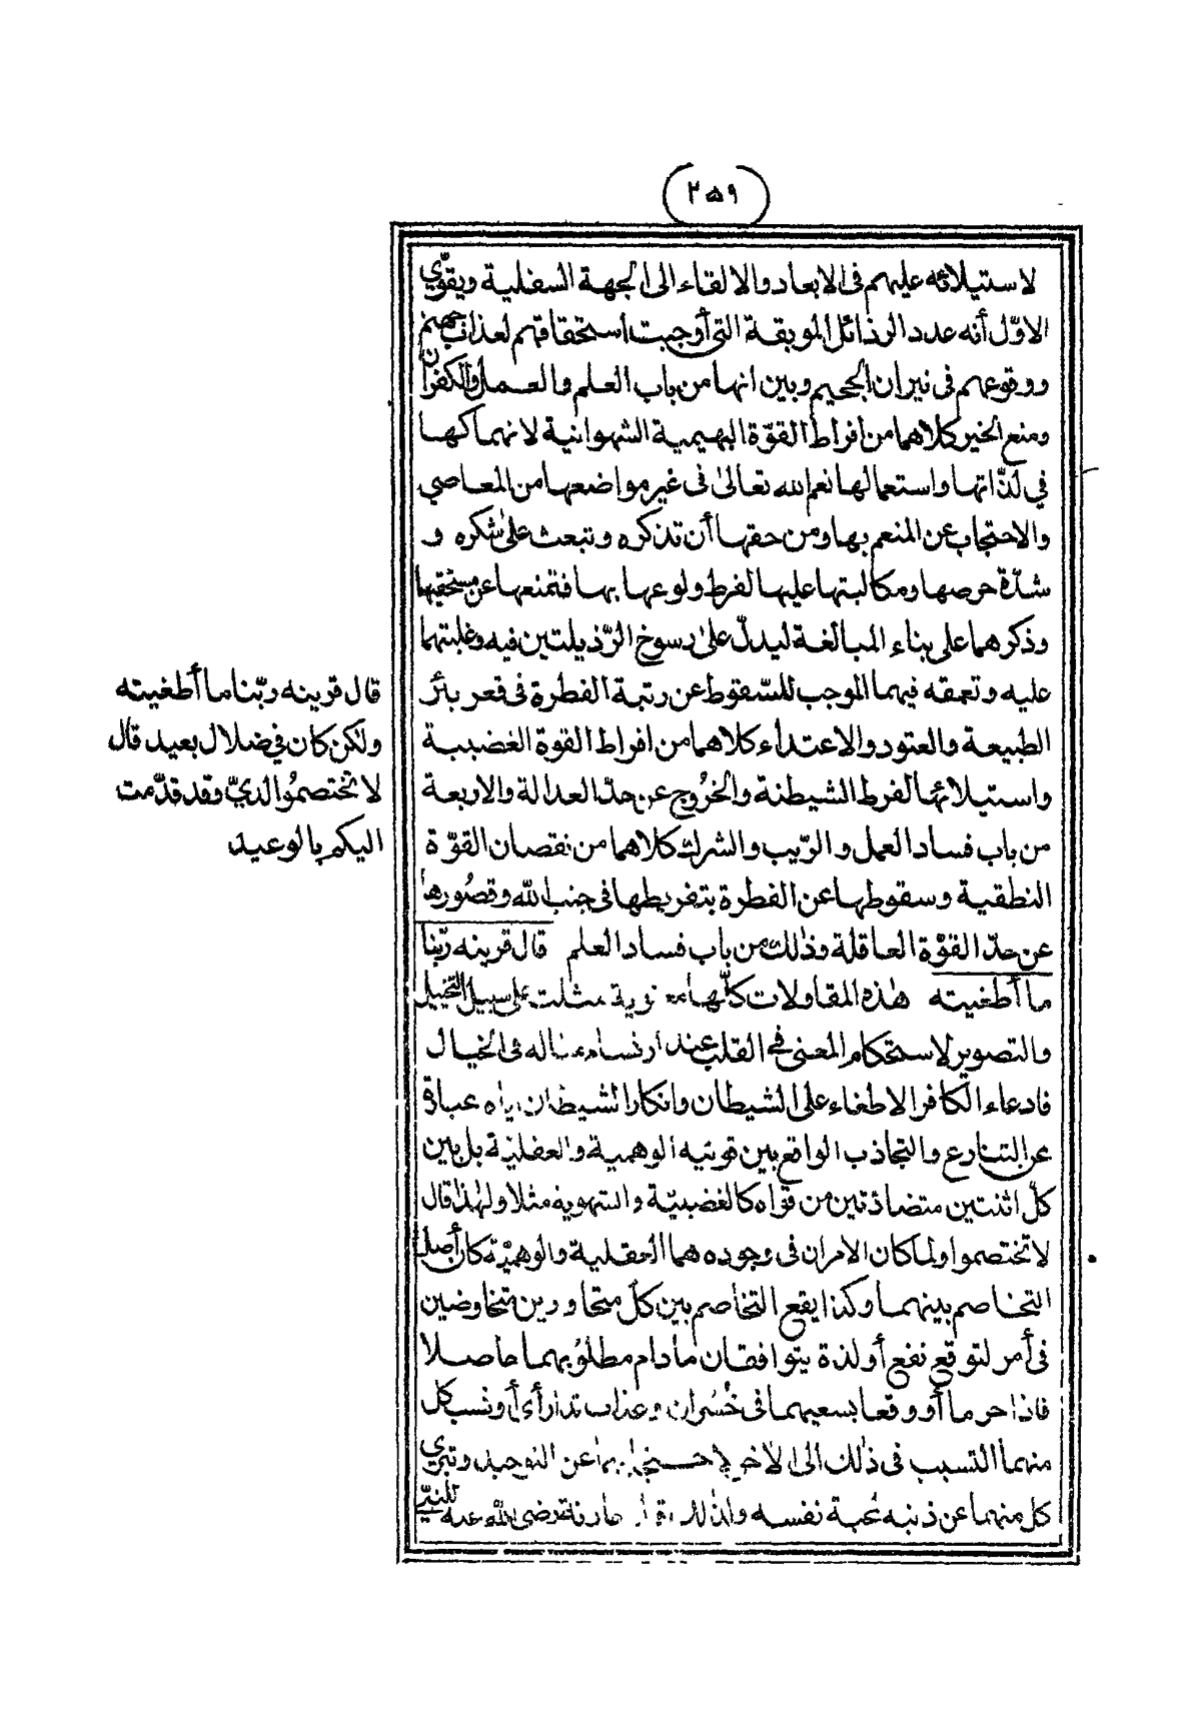 (٢٥٩)
لاستيلائه عليهم في الابعاد والالقاء الى الجهة السفلية ويقوّي
الاوّل أنه عدد الرذائل الموبقة التي أوجبت استحقاقهم لعذاب جهنم
ووقوعهم في نيران الجحيم وبين انها من باب العلم والعمل والكفران
ومنع الخير كلاهما من افراط القوّة البهيمية الشهوانية لانهماكها
في لذّاتها واستعمالها نعم الله تعالىٰ فى غير مواضعها من المعاصي
والاحتجاب عن المنعم بها ومن حقها أن تذكره وتبعث علىٰ شكره و
شدّة حرصها ومكالبتها عليها لفرط ولوعها بها فتمنعها عن مستحقيها
وذكرهما على بناء المبالغة ليدلّ علىٰ رسوخ الرّذيلتين فيه وغلبتهما
عليه وتعمقه فيهما الموجب للسّقوط عن رتبة الفطرة في قعر بئر
الطبيعة والعتود والاعتداء كلاهما من افراط القوة الغضبية
واستيلائها لفرط الشيطنة والخُروج عن حدّ العدالة والاربعة
من باب فساد العمل والرّيب والشرك كلاهما من نقصان القوّة
النطقية وسقوطها عن الفطرة بتفريطها في جنب الله وقصُورها
عن حدّ القوّة العاقلة وذٰلك من باب فساد العلم قال قرينه ربّنا
ما أطغيته هٰذه المقاولات كلّها معنوية مثلت على سبيل التخييل
والتصوير لاستحكام المعنى في القلب عند ارتسام مثاله في الخيال
فادعاء الكافر الاطغاء على الشيطان وانكار الشيطان اياه عبارة
عن التنازع والتجاذب الواقع بين قوتيه الوهمية والعقلية بل بين
كلّ اثنتين متضادّتين من قواه كالغضبيّة والشهوية مثلا ولهٰذا قال
لا تختصموا ولما كان الامران في وجوده هما العقلية والوهميّة كان أصل
التخاصم بينهما وكذا يقع التخاصم بين كلّ متحاورين متخاوضين
في أمر لتوقع نفع أو لذة يتوافقان ما دام مطلوُبهما حاصلا
فاذا حرما أو وقعا بسعيهما في خُسران وعذاب تدارأا أو نسب كل
منهما التسبب في ذٰلك الى الاٰخر لاحتجابهما عن التوحيد وتبرّي
كل منهما عن ذنبه لمحبة نفسه ولذلك حارثة رضي الله عنه للنبيّ
قال قرينه ربّنا ما أطغيته
ولٰكن كان في ضلال بعيد قال
لا تختصمُوا لديّ وقد قدّمت
اليكم بالوعيد